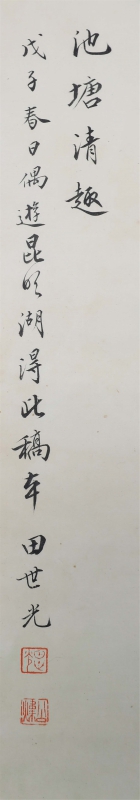 池塘清趣
戊子春日偶遊昆明湖得此稿本 田世光